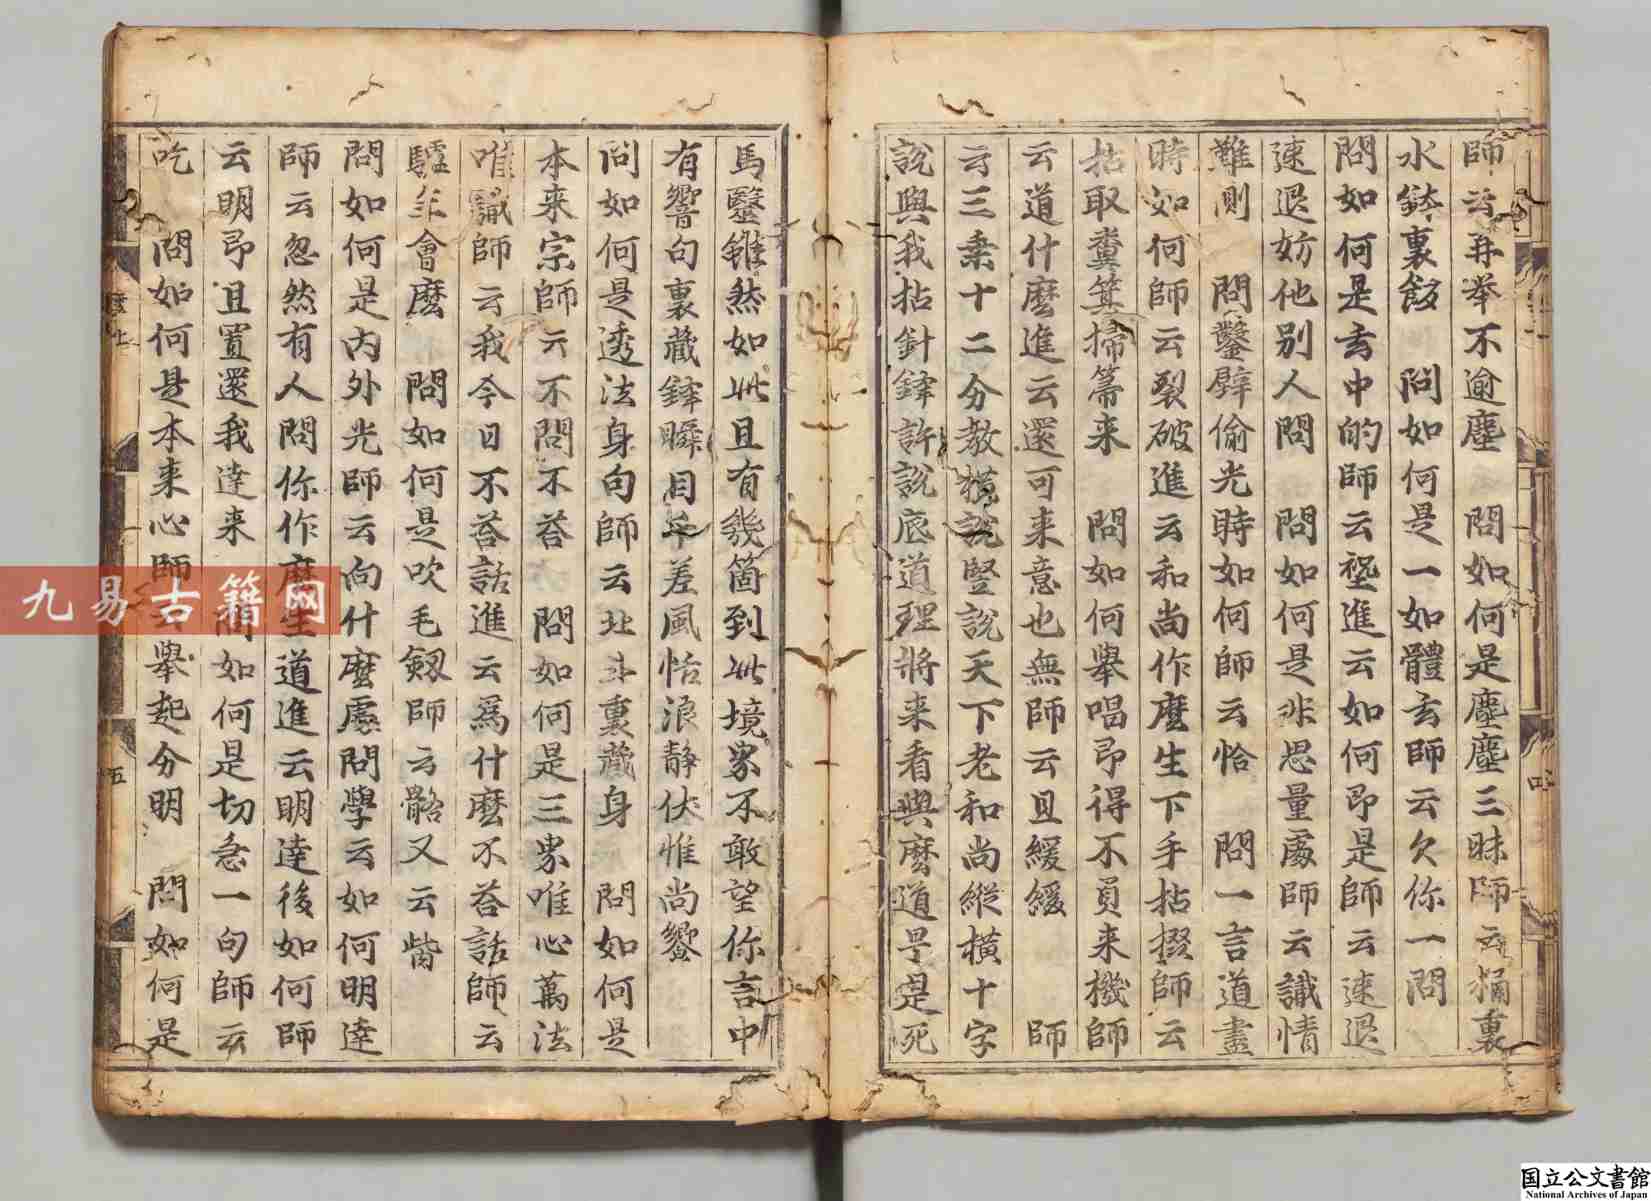 師云再举不逾塵　問如何是塵塵三昧師云桶裏
水鉢裏飯　問如何是一如體玄師云欠你一問
問如何是玄中的師云堅進云如何即是師云速退
速退妨他別人問　問如何是非思量處師云識情
難測　問鑿壁偷光時如何師云恰　問一言道盡
時如何師云裂破進云和尚作麼生下手拈掇師云
拈取糞箕掃箒来　問如何舉唱即得不負来機師
云道什麼進云還可来意也無師云且緩緩　師
云三乗十二分教橫說豎說天下老和尚縱橫十字
說與我拈針鋒許說底道理將来看與麼道早是死
馬醫雖然如此且有幾箇到此境界不敢望你言中
有響句裏藏鋒瞬目千差風恬浪静伏惟尚饗
問如何是透法身句師云北斗裏藏身　問如何是
本来宗師云不問不荅　問如何是三界唯心萬法
唯識師云我今日不荅話進云爲什麼不荅話師云
驢年會麼　問如何是吹毛劒師云骼又云胔
問如何是内外光師云向什麼處問學云如何明達
師云忽然有人問你作麼生道進云明達後如何師
云明即且置還我達来　問如何是切急一句師云
吃　問如何是本来心師云舉起分明　問如何是
四
五
九易古籍网
国立公文書館
National Archives of Japan